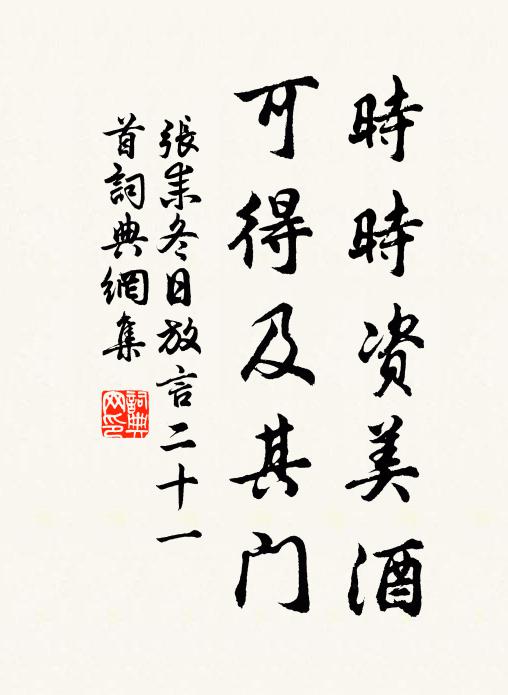 時時资美酒
可得及其门
張耒冬日放言二十一
首詞典網集
詞典网印